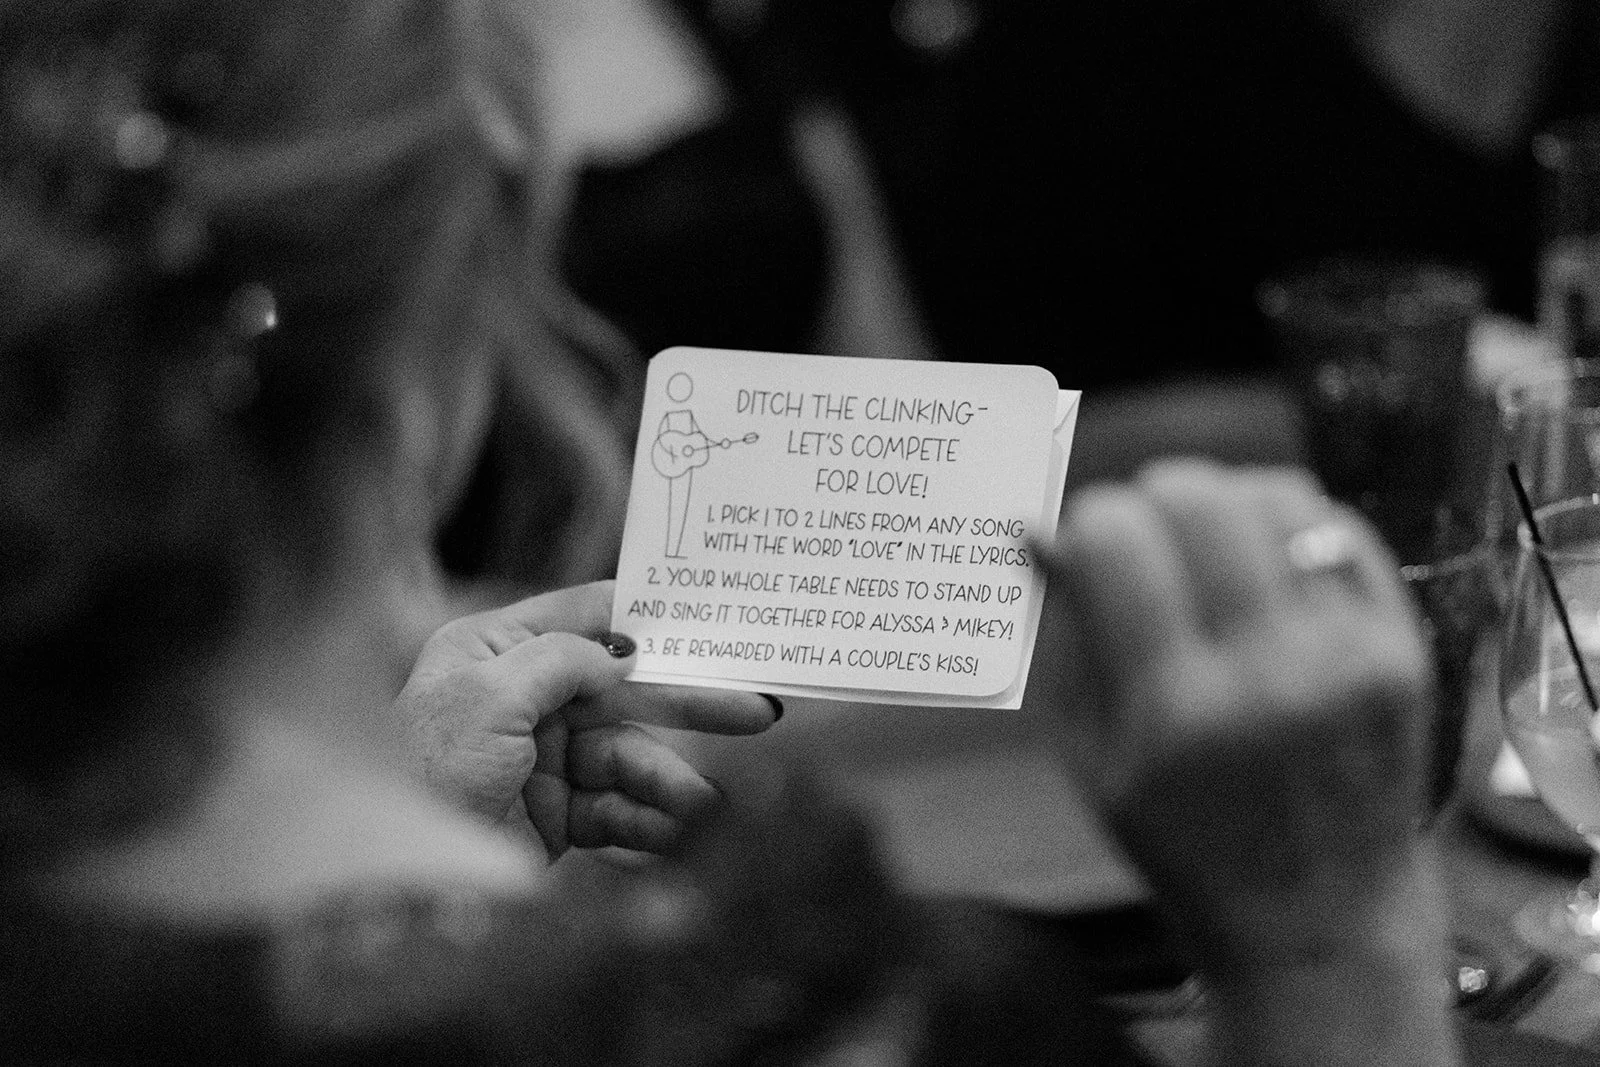 DITCH THE CLINKING-
LET'S COMPETE
FOR LOVE!
1. PICK 1 TO 2 LINES FROM ANY SONG
WITH THE WORD "LOVE" IN THE LYRICS.
2. YOUR WHOLE TABLE NEEDS TO STAND UP
AND SING IT TOGETHER FOR ALYSSA & MIKEY!
3. BE REWARDED WITH A COUPLE'S KISS!